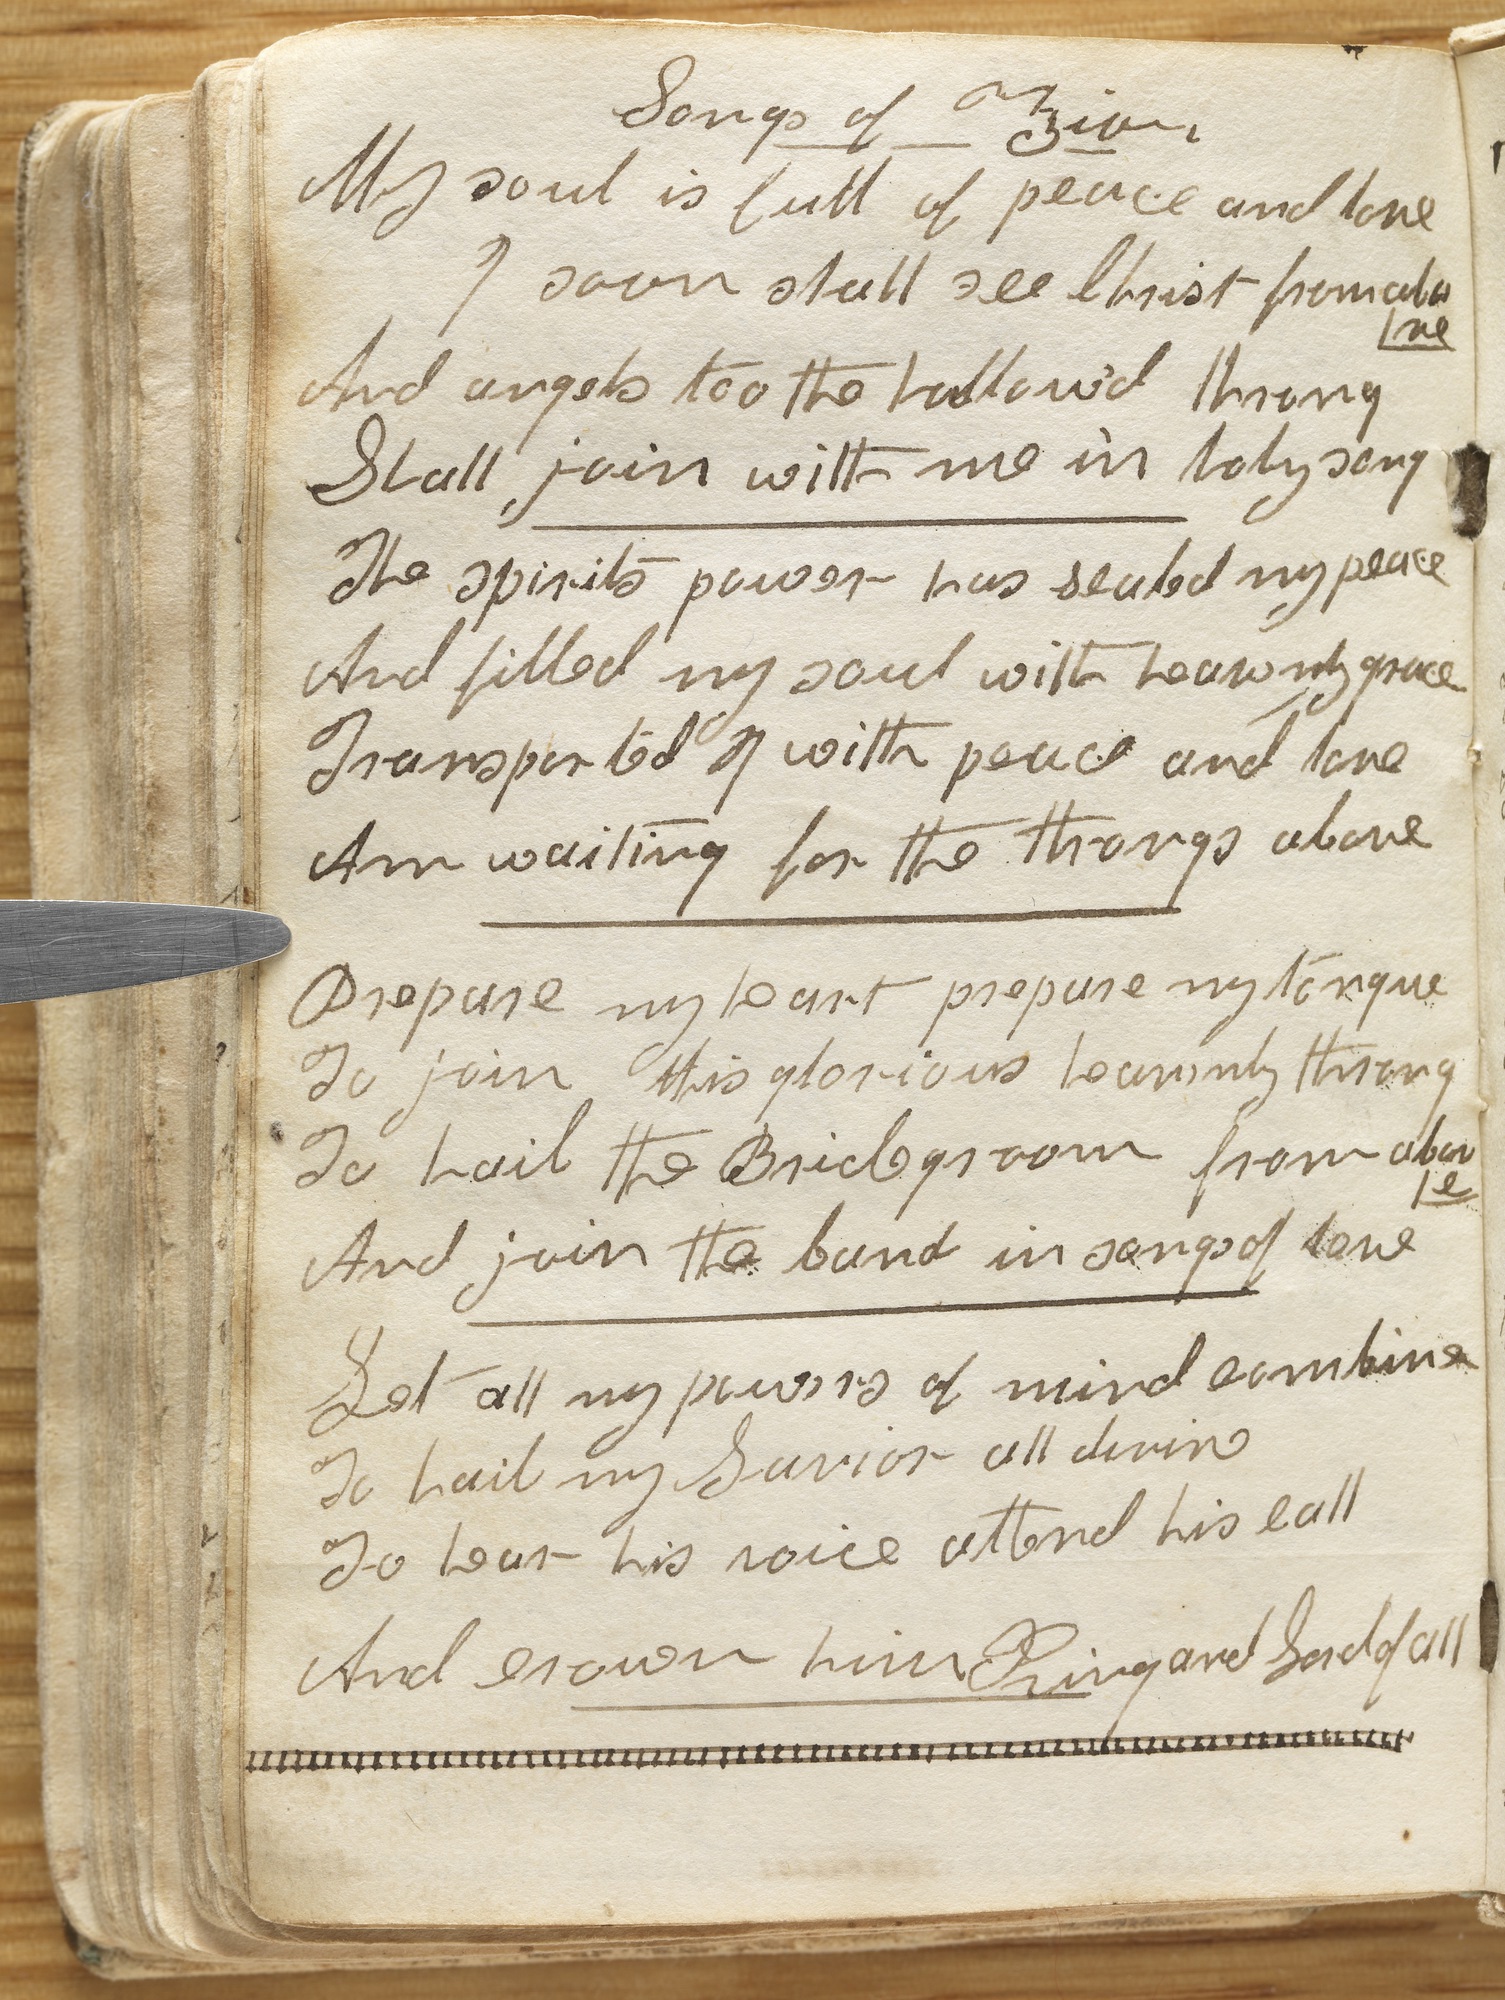 Songs of Zion
My soul is full of peace and love
I soon shall see Christ from abo
ve
And angels too the hallow'd throng
Shall join with me in holy song
The spirits power has sealed my peace
And filled my soul with heavenly grace
Transported I with peace and love
Am waiting for the throngs above
Prepare my heart prepare my tongue
To join this glorious heavenly throng
To hail the Bridegroom from abov
e
And join the band in songs of love
Let all my powers of mind combine
To hail my Savior all divine
To hear his voice attend his call
And crown him King and Lord of all